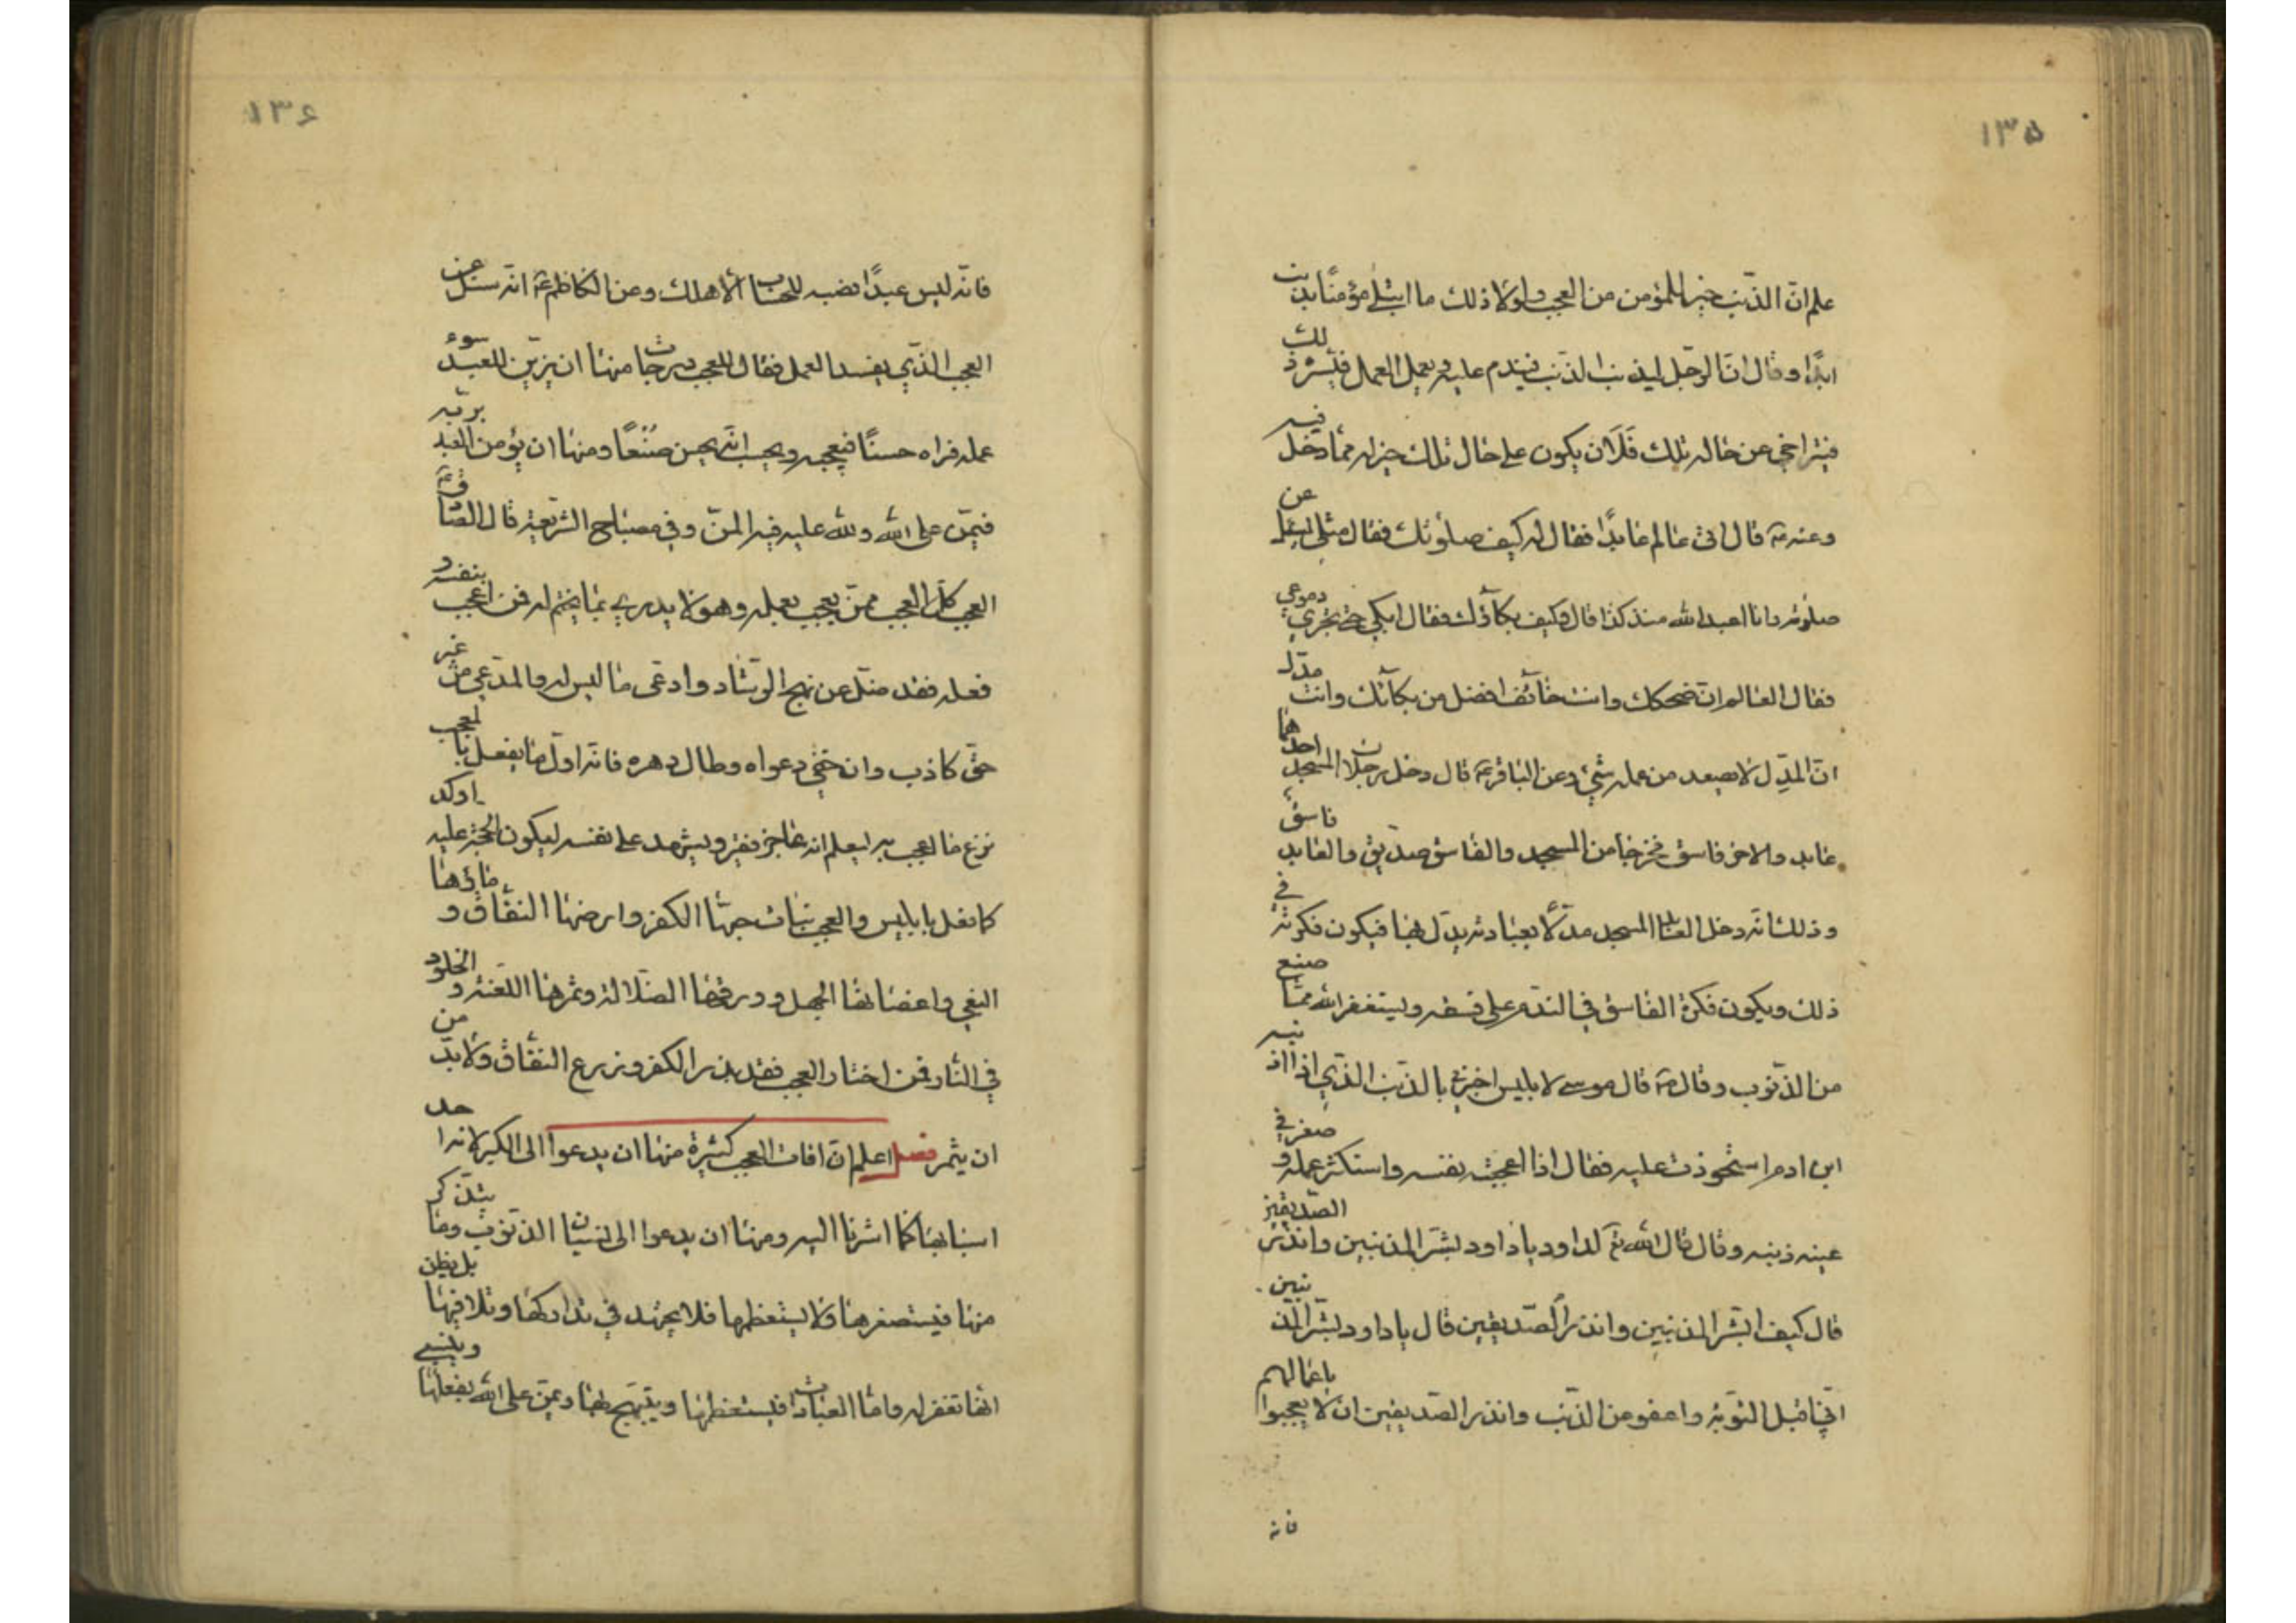 ١٣۵
علم ان الذنب خير للمؤمن من العجب ولولا ذلك ما ابتلى مؤمنا بذنب
ابدًا وقال ان الرجل ليذنب الذنب فيندم عليه ويعمل العمل فيسره ذلك
فيتراخى عن حاله تلك فلان يكون على حال تلك خير له مما دخل فيه
وعنه ع قال اتى عالم عابدًا فقال له كيف صلوتك فقال مثلى يسئل عن
صلوته وانا اعبد الله منذ كذا قال وكيف بكآؤك فقال ابكى حتى تجرى دموعى
فقال العالم ان ضحكك وانت خآئف افضل من بكآئك وانت مدل
ان المدل لا يصعد من عمله شئ وعن الباقر ع قال دخل رجلان المسجد احدهما
عابد والاخر فاسق فخرجا من المسجد والفاسق صديق والعابد فاسق
وذلك انه دخل العابد المسجد مدلًا بعبادته يدل بها فيكون فكرته فى
ذلك ويكون فكرة الفاسق فى الندم على فسقه ويستغفر الله مما صنع
من الذنوب وقال ع قال موسى لابليس اخبرنى بالذنب الذى اذا اذنبه
ابن ادم استحوذت عليه فقال اذا اعجبته نفسه واستكثر عمله وصغر فى
عينه ذنبه وقال قال الله تع لداود ياداود بشر المذنبين وانذر الصديقين
قال كيف ابشر المذنبين وانذر الصديقين قال ياداود بشر المذنبين
انى اقبل التوبة واعفو عن الذنب وانذر الصديقين ان لا يعجبوا باعمالهم
فانه
١٣۶
فانه ليس عبدًا نصبه للحساب الا هلك وعن الكاظم ع انه سئل عن
العجب الذى يفسد العمل فقال للعجب درجات منها ان يزين للعبد سوء
عمله فراه حسنًا فيعجبه ويحسب انه يحسن صنعًا ومنها ان يؤمن العبد بربه
فيمن على الله ولله عليه فيه المن وفى مصباح الشريعة قال الصادق ع
العجب كل العجب ممن يعجب بعمله وهو لا يدرى بما يختم له فمن اعجب بنفسه و
فعله فقد ضل عن نهج الرشاد وادعى ما ليس له والمدعى من غير
حق كاذب وان خفى دعواه وطال دهره فانه اول ما يفعل بالمعجب
نزع ما اعجب به ليعلم انه عاجز فقير ويشهد على نفسه ليكون الحجة عليه اوكد
كما فعل بابليس والعجب نبات حبها الكفر وارضها النفاق و مائها
البغى واغصانها الجهل وورقها الضلالة وثمرها اللعنة و الخلود
فى النار فمن اختار العجب فقد بذر الكفر وزرع النفاق ولا بد من
ان يثمر فصل اعلم ان افات العجب كثيرة منها ان يدعوا الى الكبر لانه احد
اسبابها كما اشرنا اليه ومنها ان يدعوا الى نسيان الذنوب وما يتذكر
منها فيستصغرها ولا يستعظمها فلا يجتهد فى تداركها وتلافيها بل يظن
انها تغفر له واما العبادات فيستعظمها ويتبهج بها ويمن على الله بفعلها وينسى